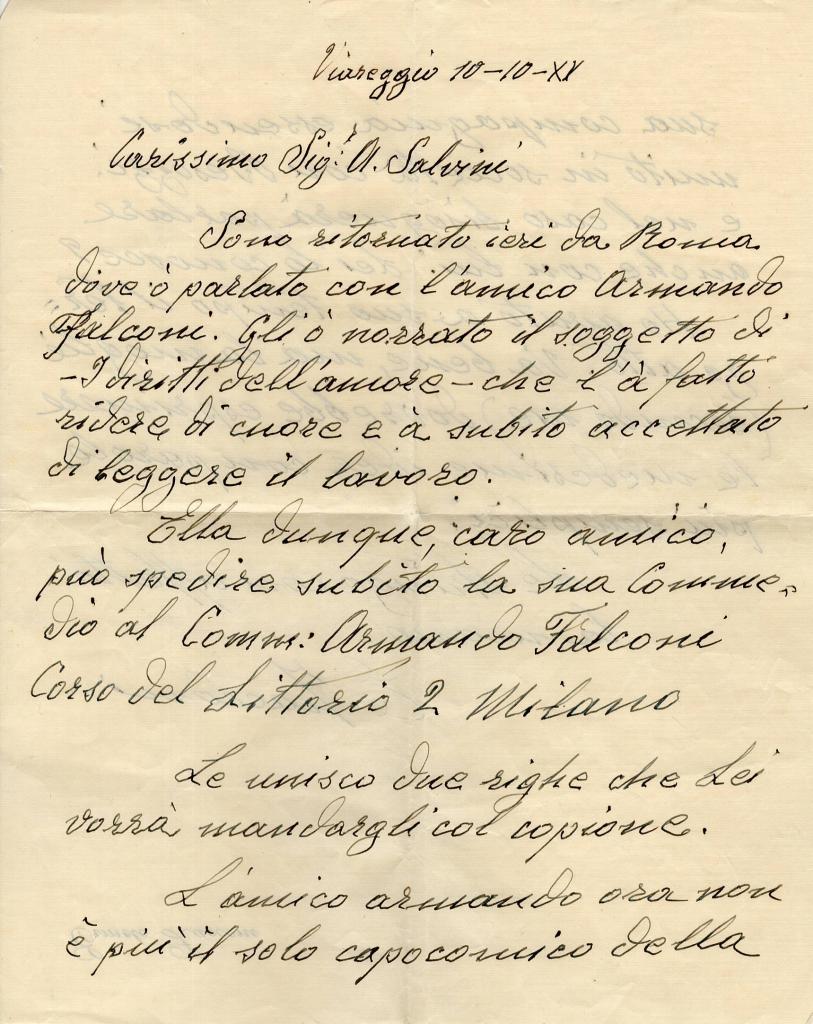 Viareggio 10-10-XV
Carissimo Sig.r A. Salvini
Sono ritornato ieri da Roma
dove ò parlato con l'amico Armando
Falconi. Gli ò narrato il soggetto di
- I diritti dell'amore - che l'à fatto
ridere di cuore e à subito accettato
di leggere il lavoro.
Ella dunque, caro amico,
può spedire subito la sua Comme-
dia al Comm: Armando Falconi
Corso del Littorio 2 Milano
Le unisco due righe che Lei
vorrà mandargli col copione.
L'amico armando ora non
è più il solo capocomico della